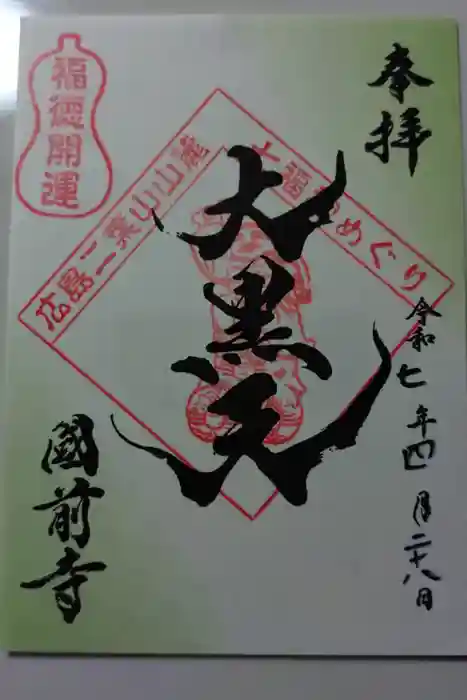 奉拝
令和七年四月二十八日
七福神めぐり
大黒天
広島二葉山山麓
福徳開運
國前寺